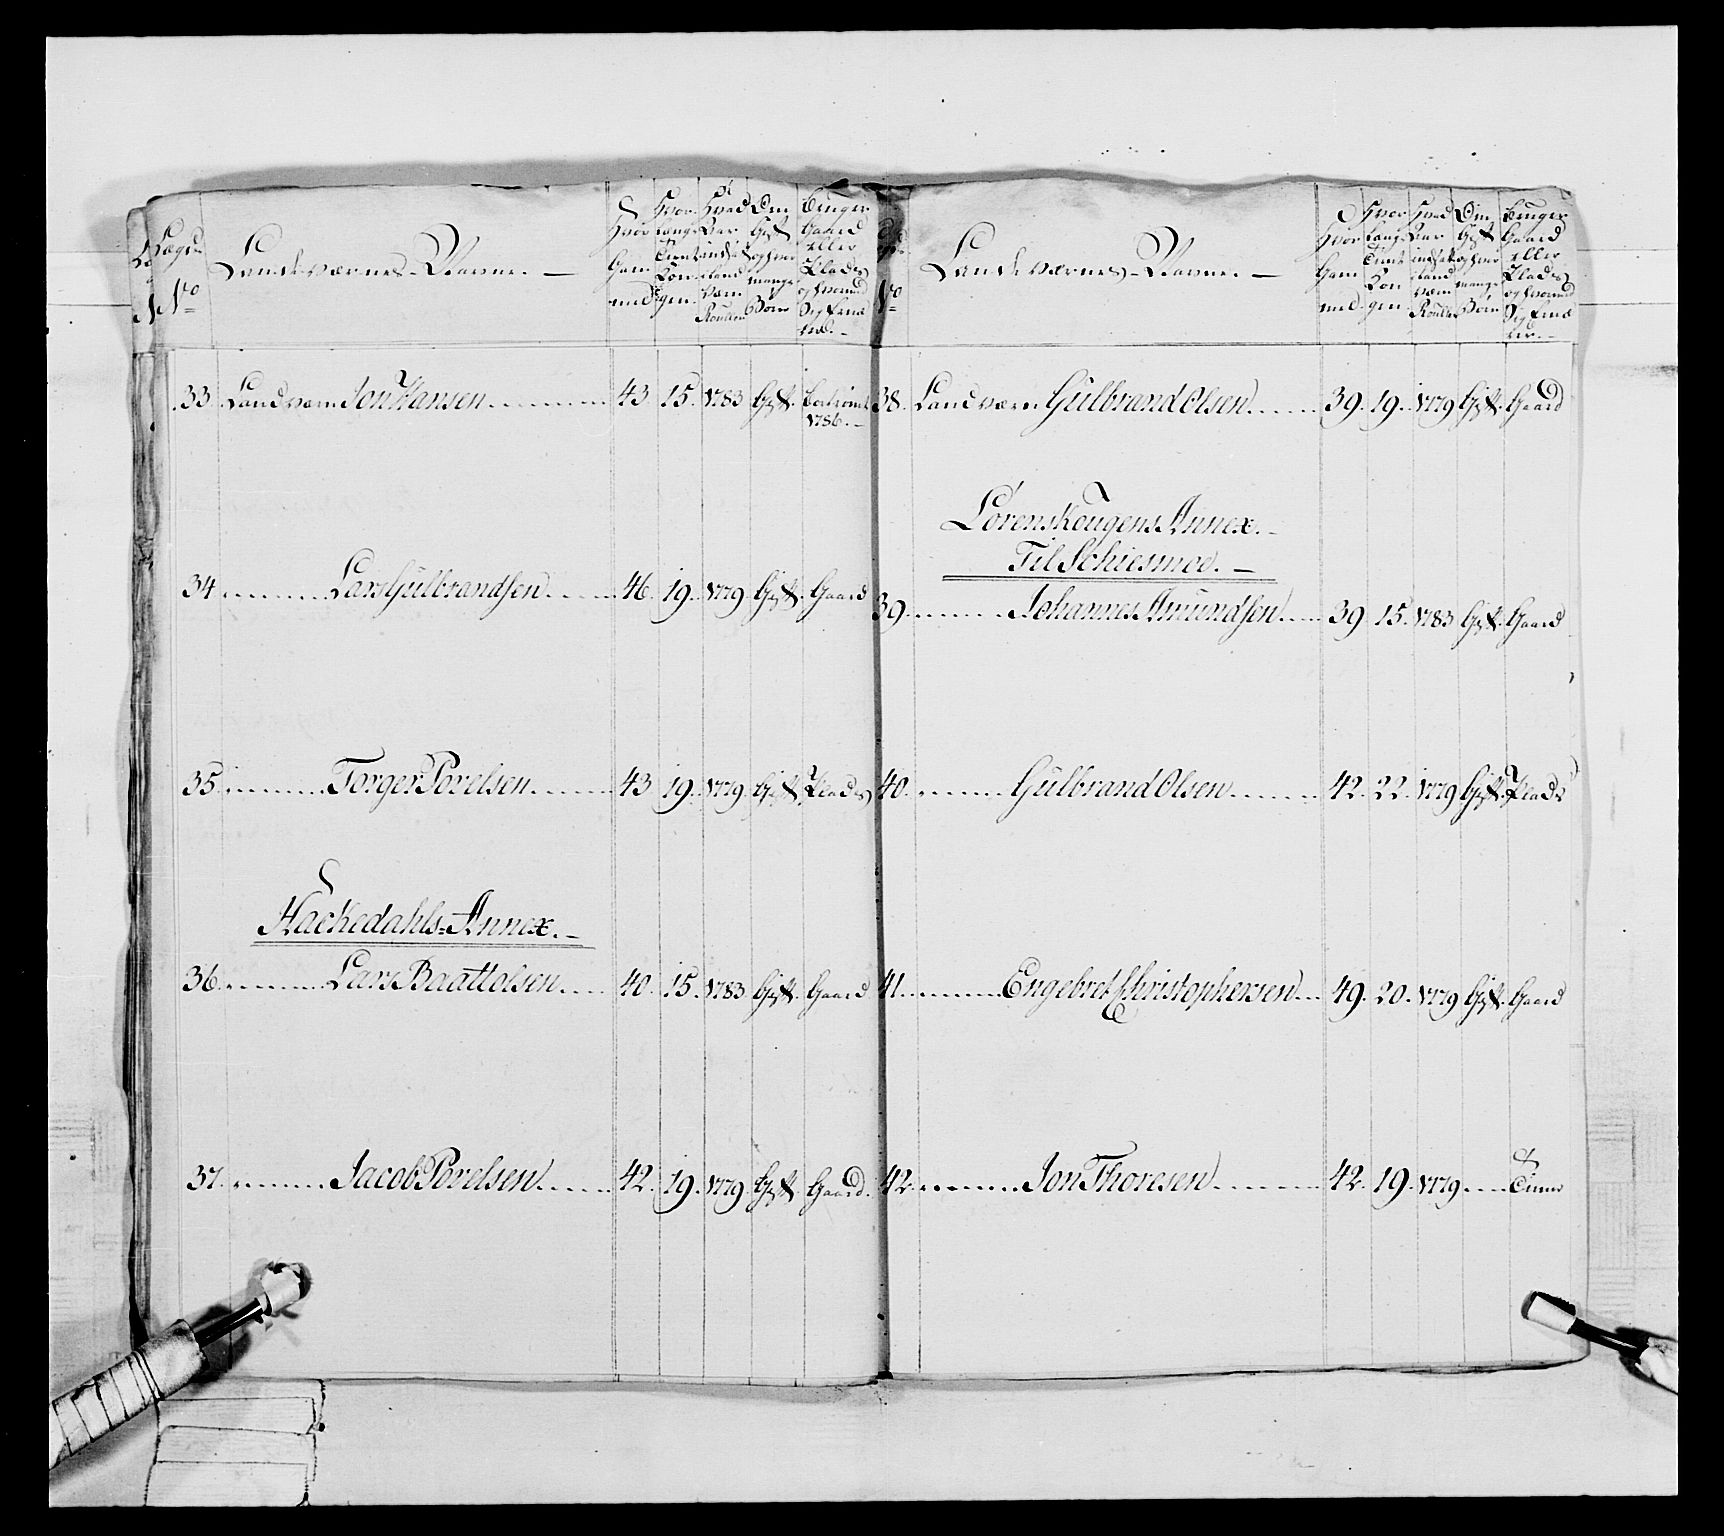 Lægds No
Landeværnes-Navne. —
Hvor Gam mel
Hvor længe Tient Kon gen.
Hvad Aar indsat i land værn Roullen
Om Gift og hvor mange Børn
Bruger Gaard eller Plads og hvormed Sig Ernæ rer. —
33 Landværn Jon Hansen 43 15 1783 Gift.
1786. —
34 Lars Gulbrandsen 46 19 1779 Gift Gaard
35 Torger Povelsen 43 19 1779 Gift Plads
Hackedahls=Annex. —
36 Lars Baattolsen 40 15 1783 Gift. Gaard
37. Jacob Povelsen 42 19 1779 Gift Gaard.
No
Landeværnes-Navne. —
Hvor Gam mel.
Hvor længe Tient Kon gen
Hvad Aar indsat i land værn Roullen
Om Gift og hvor mange Børn
Bruger Gaard eller Plads og hvormed Sig Ernæ rer. —
38. Landværn Gulbrand Olsen 39. 19. 1779 Gift Gaard
Lørenskougens Annex. —
Til Schiesmoe. —
39. Johannes Amundsen 39 15. 1783 Gift. Gaard
40. Gulbrand Olsen 42. 22. 1779 Gift. Plads
41. Engebret Christophersen 49. 20. 1779 Gift. Gaard
42. Jon Thoresen 42. 19 1779 Tiener